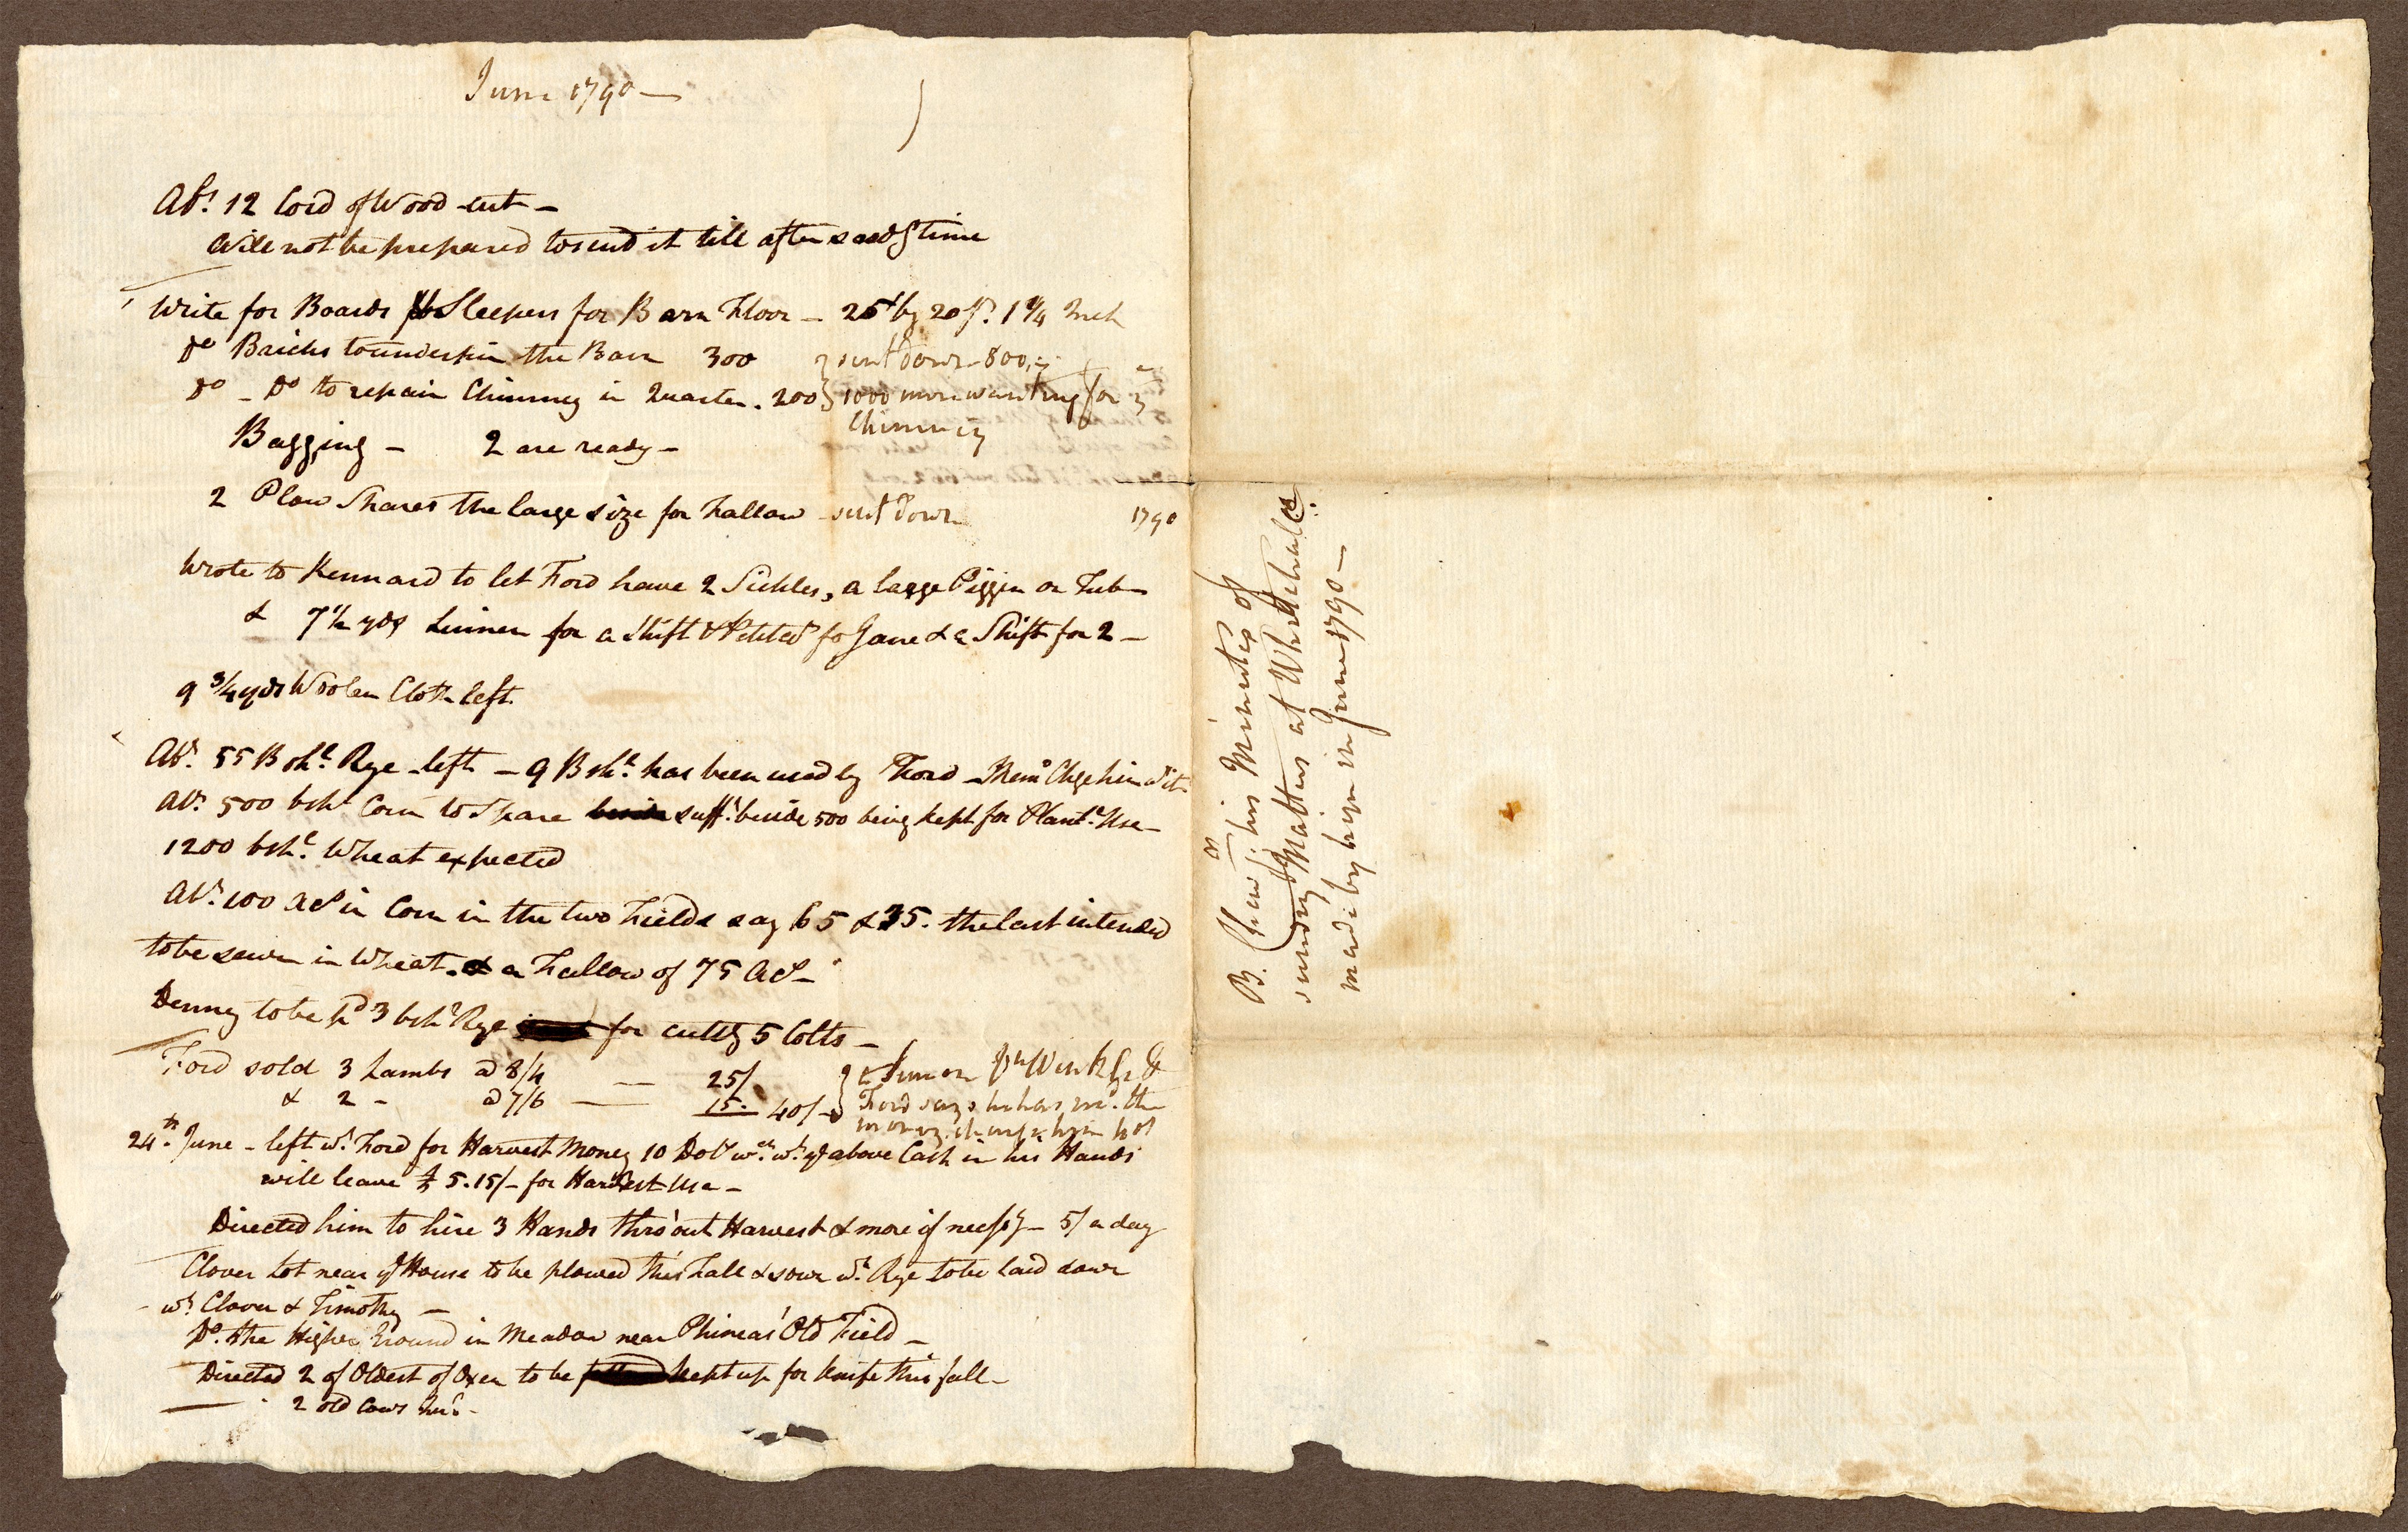 June 1790 —
Abt. 12 Cord of Wood cut —
Will not be prepared to send it till after seedg time
Write for Boards & Sleepers for Barn Floor — 25 by 20 ft. 1 1/4 Inch
Do Bricks to underpin the Barn 300 } sent down 800
Do — Do to repair Chimney in Quarter. 200 } 1000 more wanting for
Chimney
Bagging — 2 are ready —
2 Plow Shares the large size for Fallow sent down 1790
Wrote to Kennard to let Ford have 2 Sickles, a large Piggin or Tub
& 7 1/2 yds Linnen for a Shift & Petitct for Jane & a Shift for 2 —
9 3/4 yds Woolen Cloth left
Abt. 55 Bshs. Rye left — 9 Bshs. has been used by Ford — Memo Chge him wt it
Abt. 500 bshs Corn to Spare sufft. beside 500 being kept for Plantn. Use —
1200 bshs. Wheat expected
Abt. 100 acs in Corn in the two Fields say 65 & 35. the last intended
to be sown in Wheat. & a Fallow of 75 Acs —
Denny to be pd 3 bshs Rye for cuttg 5 Colts —
Ford sold 3 Lambs @ 8/4 — 25/
& 2 — @ 7/6 — 15. 40/ } Ford says he has recd. the
money
24th. June — left wt. Ford for Harvest Money 10 Dolrs wch. wt. ye above Cash in his Hands
will leave £ 5.15/— for Harvest Use —
Directed him to hire 3 Hands thro'out Harvest & more if necessy — 5/ a day
Clover Lot near ye House to be plowed this Fall & sown wt. Rye to be laid down
wt Clover & Timothy —
Do. the Higher Ground in Meadow near Phineas' Old Field —
Directed 2 of Oldest of Oxen to be kept up for Knife this fall —
2 old Cows
B. Chew his Minutes of
sundry Matters at Whitehall
made by him in June 1790 —